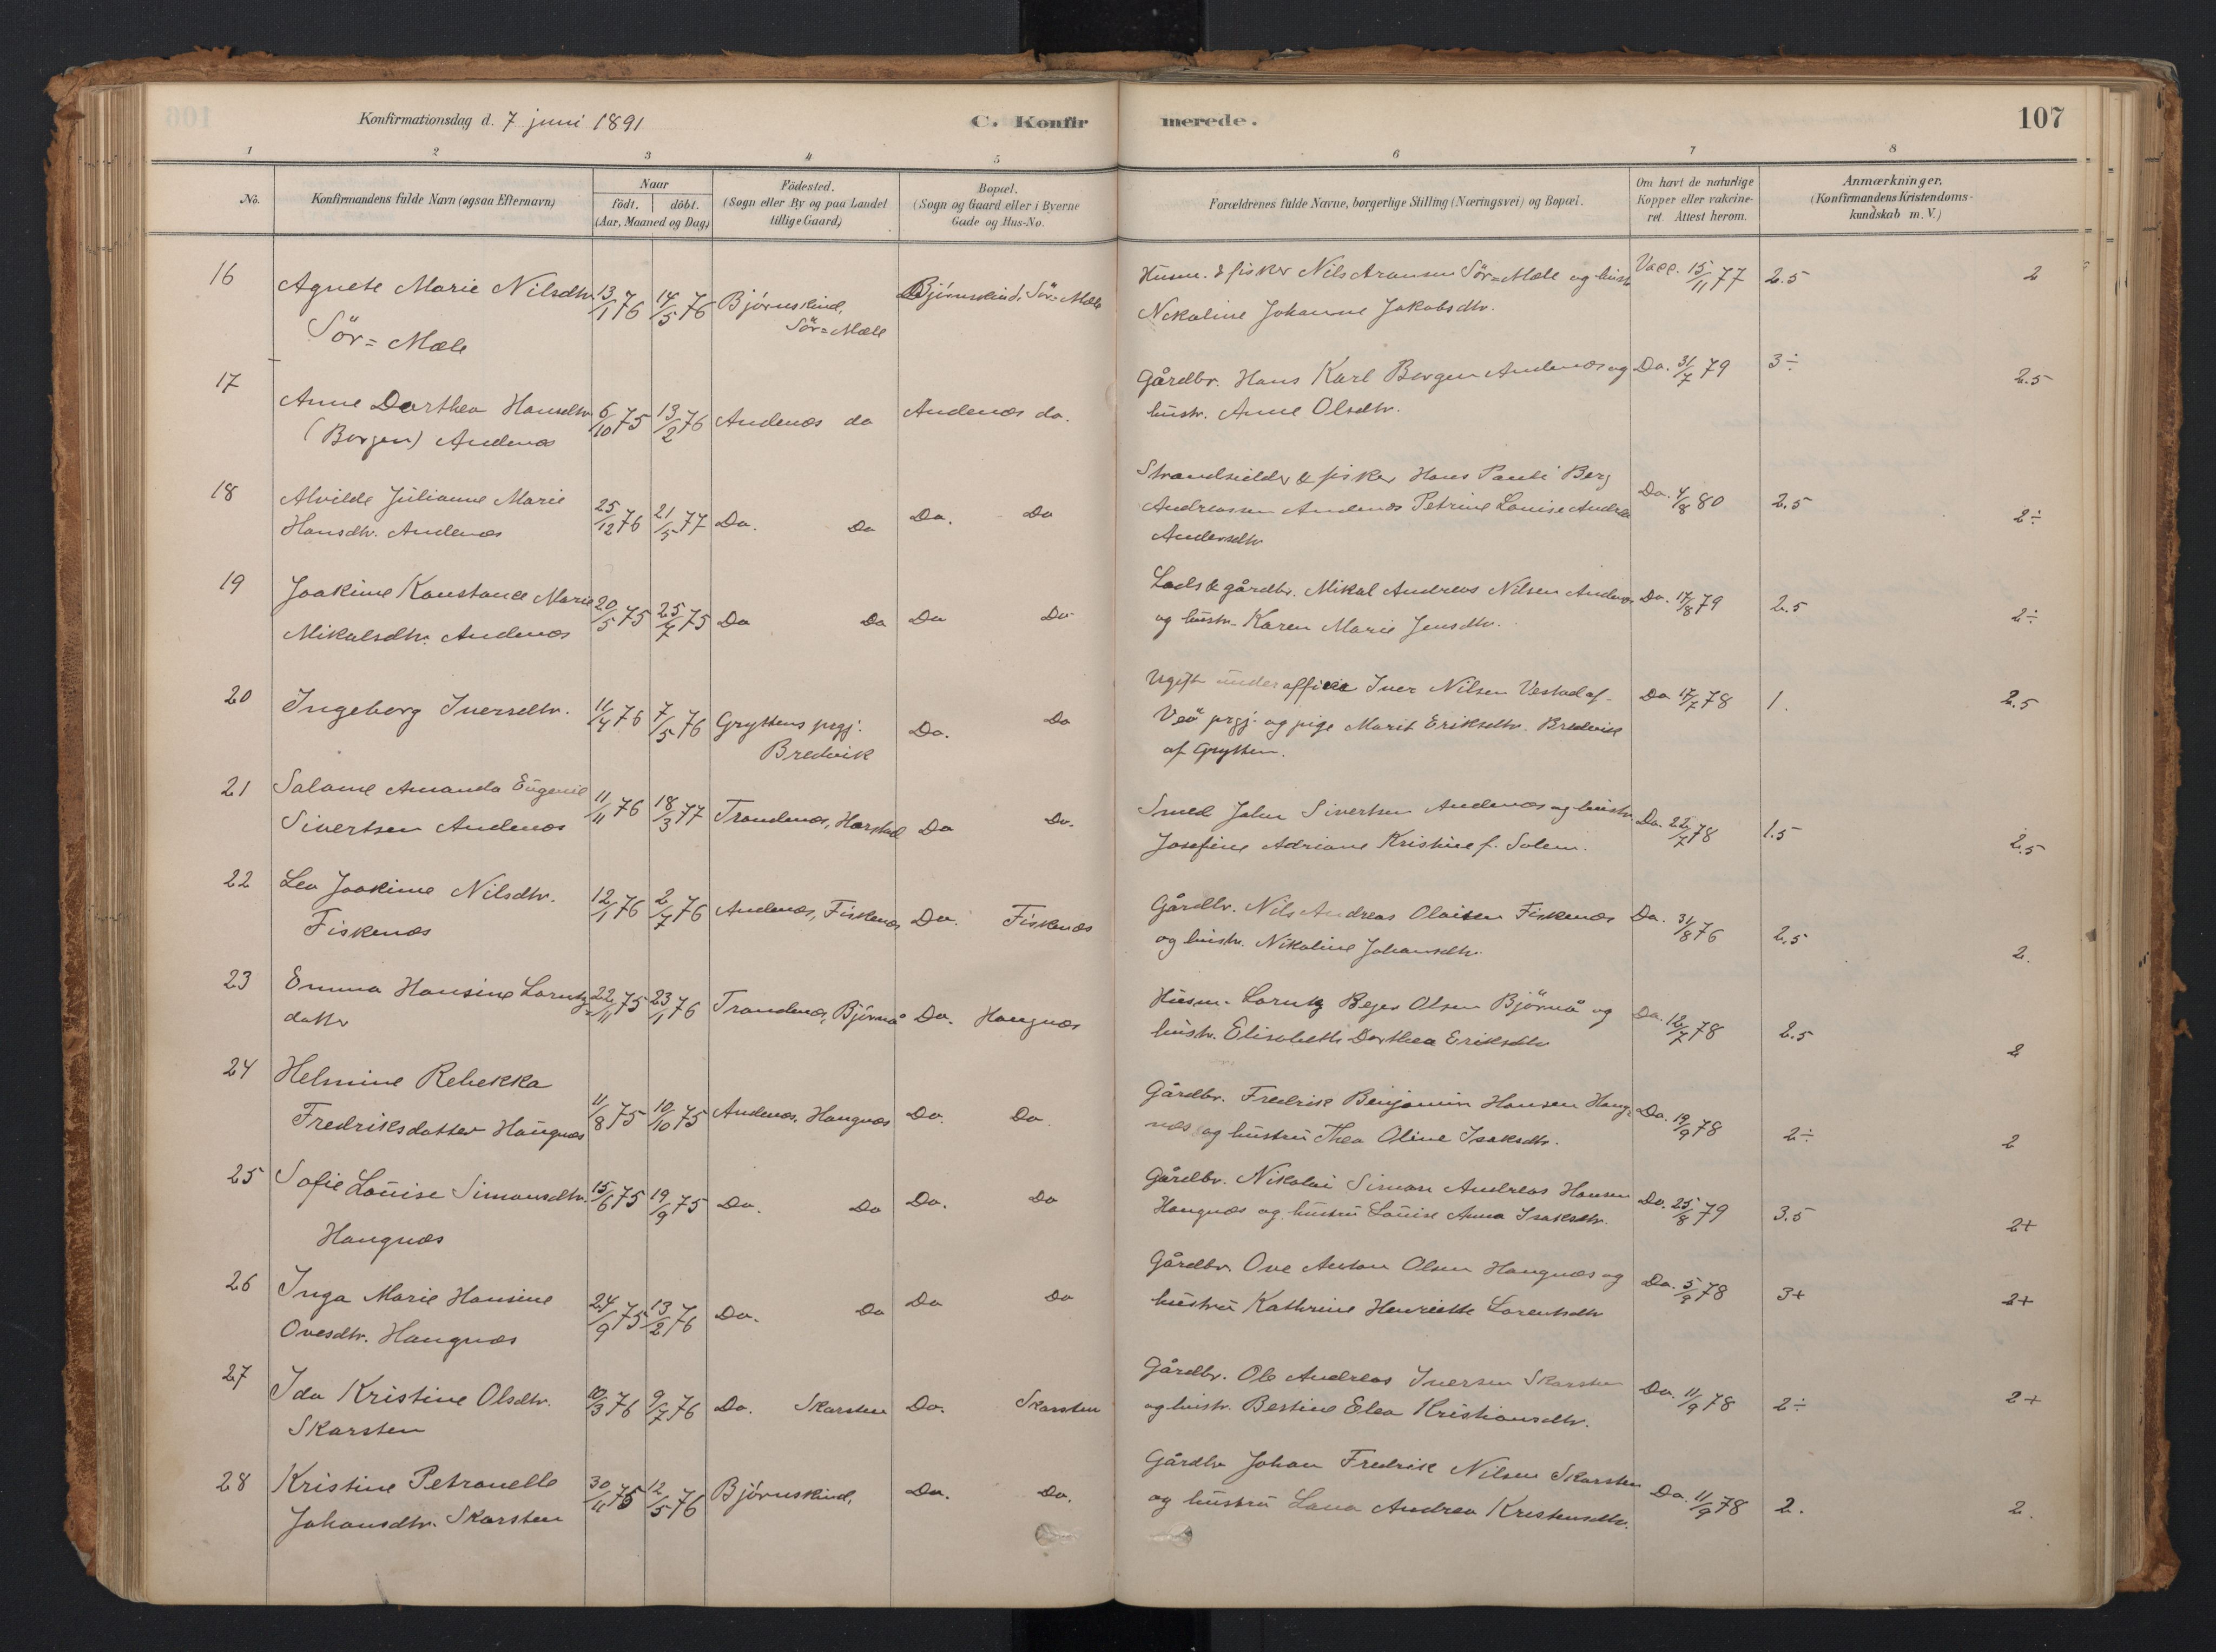 Konfirmationsdag d. 7 juni 1891
C. Konfirmerede.
107
1 2 3 4 5 6 7 8
No. Konfirmandens fulde Navn (ogsaa Efternavn) Naar født. døbt. (Aar, Maaned og Dag) Födested. (Sogn eller By og paa Landet tillige Gaard) Bopæl. (Sogn og Gaard eller i Byerne Gade og Hus-No. Forældrenes fulde Navne, borgerlige Stilling (Næringsvei) og Bopæl. Om havt de naturlige Kopper eller vakcineret. Attest herom. Anmærkninger. (Konfirmandens Kristendomskundskab m. V.)
16 Agnete Marie Nilsdtr. 13/1 76 14/5 76 Bjørnskind, Bjørnskind, Sör=Mæle Husm. & fisker Nils Aronsen Sör=Mæle og hustr Vacc. 15/11 77 2.5 2
Sör=Mæle Sör=Mæle Nikoline Johanne Jakobsdtr.
17 Anne Dorthea Hansdtr. 6/10 75 13/2 76 Andenæs do Andenæs do. Gårdbr. Hans Karl Borgen Andenæs og Do. 31/7 79 3÷ 2.5
(Borgen) Andenæs hustr. Anne Olsdtr.
18 Alvilde Julianne Marie 25/12 76 21/5 77 Do. Do Do. Do Strandsidder & fisker Hans Berg Do. 4/8 80 2.5 2÷
Hansdtr. Andenæs Andreassen Andenæs Petrine Louise Andrea
Andersdtr
19 Joakime Konstance Marie 20/5 75 25/7 75 Do Do Do Do Lods & gårdbr. Mikal Andreas Nilsen Andenæs Do. 17/8 79 2.5 2÷
Mikalsdtr. Andenæs og hustr. Karen Marie Jensdtr.
20 Ingeborg Iversdtr. 11/4 76 7/5 76 Gryttens prgj. Do. Do Ugift underofficer Iver Nilsen Vestad af Do 17/7 78 1. 2.5
Bredvik Veö prgj. og pige Marit Eriksdtr. Bredvik
af Grytten.
21 Salome Amanda Eugenie 11/11 76 18/3 77 Trondenæs, Harstad Do Do. Smed John Sivertsen Andenæs og hustr. Do. 22/7 78 1.5 2.5
Sivertsen Andenæs Josefine Adriane Kristine f. Solem.
22 Lea Joakime Nilsdtr. 12/1 76 2/7 76 Andenæs, Fiskenæs Do. Fiskenæs Gårdbr. Nils Andreas Olaisen Fiskenæs Do. 31/8 76 2.5 2.
Fiskenæs og hustr. Nikoline Johansdtr.
23 Emma Hansine Lorntz- 22/11 75 23/1 76 Trondenæs, Bjørnå Do. Haugnæs Husm. Lorntz Bejer Olsen Bjørnå og Do. 12/7 78 2.5 2
datter hustr. Elisabeth Dorthea Eriksdtr
24 Helmine Rebekka 11/8 75 10/10 75 Andenæs, Haugnæs Do. Do. Gårdbr. Fredrik Benjamin Hansen Haug- Do. 19/9 78 2÷ 2
Fredriksdatter Haugnæs næs og hustru Thea Oline Isaksdtr.
25 Sofie Louise Simonsdtr. 15/6 75 19/9 75 Do. Do Do. Do Gårdbr. Nikolai Simon Andreas Hansen Do. 25/8 79 3.5 2+
Haugnæs Haugnæs og hustru Louise Anna Isaksdtr.
26 Inga Marie Hansine 24/9 75 13/2 76 Do. Do Do Do Gårdbr. Ove Anton Olsen Haugnæs og Do. 5/9 78 3+ 2+
Ovesdtr. Haugnæs hustru Kathrine Henriette Lorentsdtr
27 Ida Kristine Olsdtr. 10/3 76 9/7 76 Do. Skarsten Do. Skarsten Gårdbr. Ole Andreas Iversen Skarsten Do. 11/9 78 2÷ 2+
Skarsten og hustr. Bertine Elea Kristiansdtr.
28 Kristine Petronelle 30/11 75 12/5 76 Bjørnskind, Do. Do. Gårdbr Johan Fredrik Nilsen Skarsten Do. 11/9 78 2. 2.
Johansdtr. Skarsten og hustru Lava Andrea Kristensdtr.